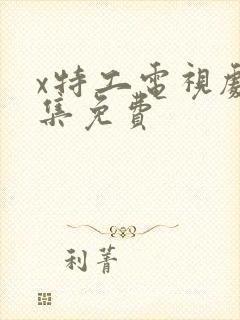 x特工電視劇
集免費
利菁